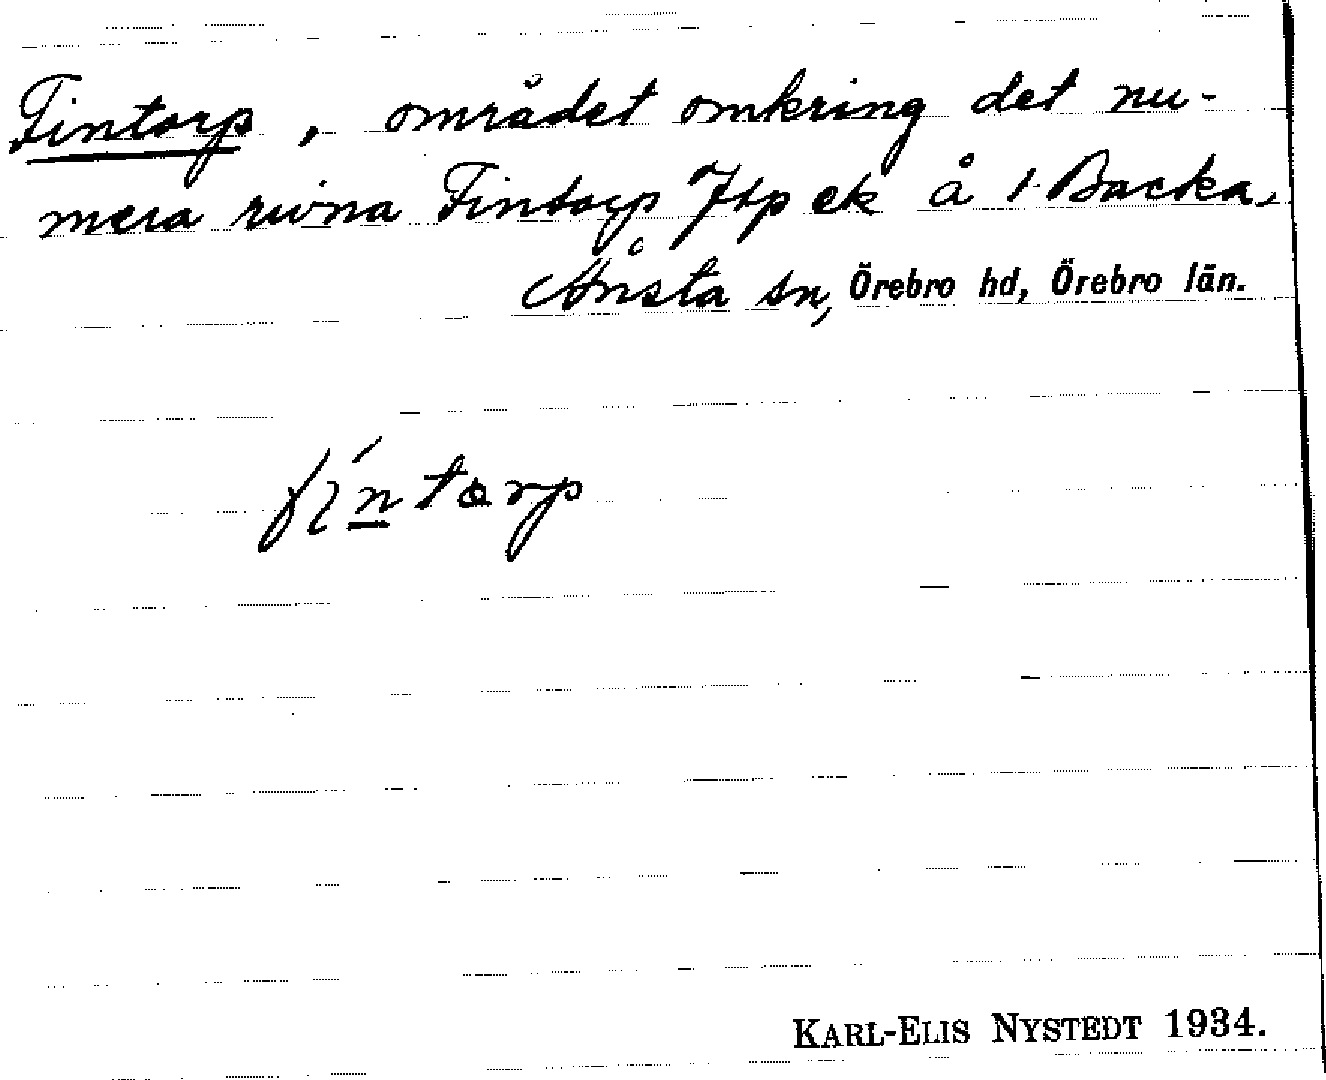 Fintorp, området omkring det nu-
mera rivna Fintorp Jtp ek å 1 Backa,
Ånsta sn, Örebro hd, Örebro län.
fíntorp
KARL-ELIS NYSTEDT 1934.